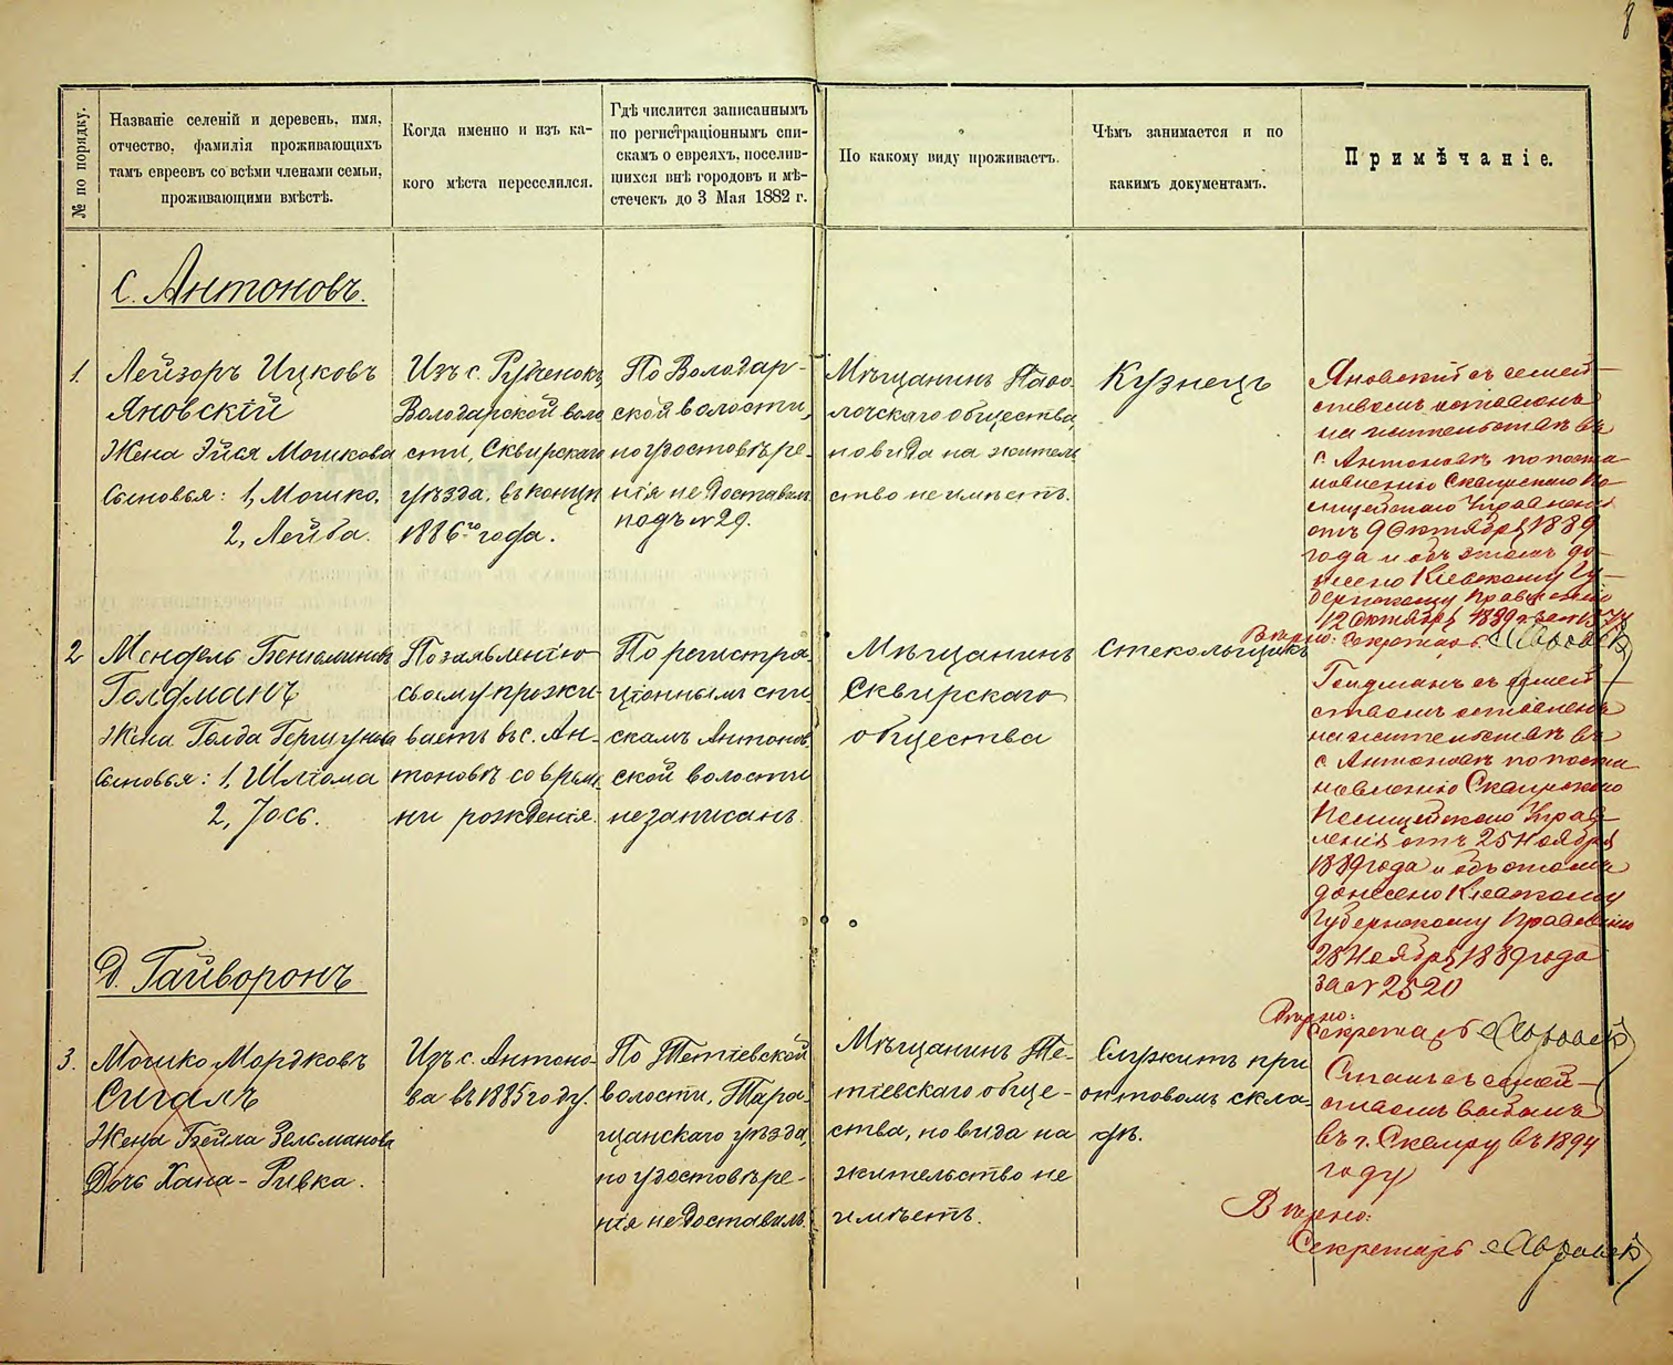 8
№ по порядку.
Названіе селеній и деревень, имя,
отчество, фамилія проживающихъ
тамъ евреевъ со всѣми членами семьи,
проживающими вмѣстѣ.
Когда именно и изъ ка-
кого мѣста переселился.
Гдѣ числится записаннымъ
по регистраціоннымъ спи-
скамъ о евреяхъ, поселив-
щихся внѣ городовъ и мѣ-
стечекъ до 3 Мая 1882 г.
По какому виду проживаетъ.
Чѣмъ занимается и по
какимъ документамъ.
Примѣчаніе.
С. Антоновъ.
1.
Лейзоръ Ицковъ
Яновскій
Жена Эйся Мошкова
Сыновья: 1, Мошко,
2, Лейба.
Изъ с. Рубченокъ,
Володарской воло
сти, Сквирскаго
уѣзда, въ концѣ
1886го года.
По Володар-
ской волости,
но удостовѣре-
нія не доставилъ
подъ № 29.
Мѣщанинъ Паво-
лочскаго общества,
но вида на житель
ство не имѣетъ.
Кузнецъ
Яновскій съ семей-
ствомъ оставленъ
на жительствѣ въ
с. Антоновѣ по поста-
новленію Сквирскаго По-
лицейскаго Управленія
отъ 9 Октября 1889
года и объ этомъ до-
несено Кіевскому Гу-
бернскому Правленію
12 Октября 1889 г. за №
Вѣрно: Секретарь
2
Мендель Беніаминовъ
Голдманъ
Жена Голда Гершунова
Сыновья: 1, Шліома
2, Іось.
По заявленію
своему прожи-
ваетъ въ с. Ан-
тоновѣ со време-
ни рожденія.
По регистра-
ціоннымъ спи-
скамъ Антонов-
ской волости
не записанъ.
Мѣщанинъ
Сквирскаго
общества
Стекольщикъ
Голдманъ съ семей-
ствомъ оставленъ
на жительствѣ въ
с. Антоновѣ по поста-
новленію Сквирскаго
Полицейскаго Управ-
ленія отъ 25 Ноября
1889 года и объ этомъ
донесено Кіевскому
Губернскому Правленію
28 Ноября 1889 года
за № 2520
Вѣрно:
Секретарь
Д. Гайворонъ
3.
Мошко Мордковъ
Сигалъ
Жена Бейла Зельманова
Дочь Хана-Ривка.
Изъ с. Антоно-
ва въ 1885 году.
По Тетіевской
волости, Тара-
щанскаго уѣзда,
но удостовѣре-
нія не доставилъ.
Мѣщанинъ Те-
тіевскаго обще-
ства, но вида на
жительство не
имѣетъ.
Служитъ при
оптовомъ скла-
дѣ.
Сигалъ съ семей-
ствомъ выбылъ
въ г. Сквиру въ 1894
году
Вѣрно:
Секретарь